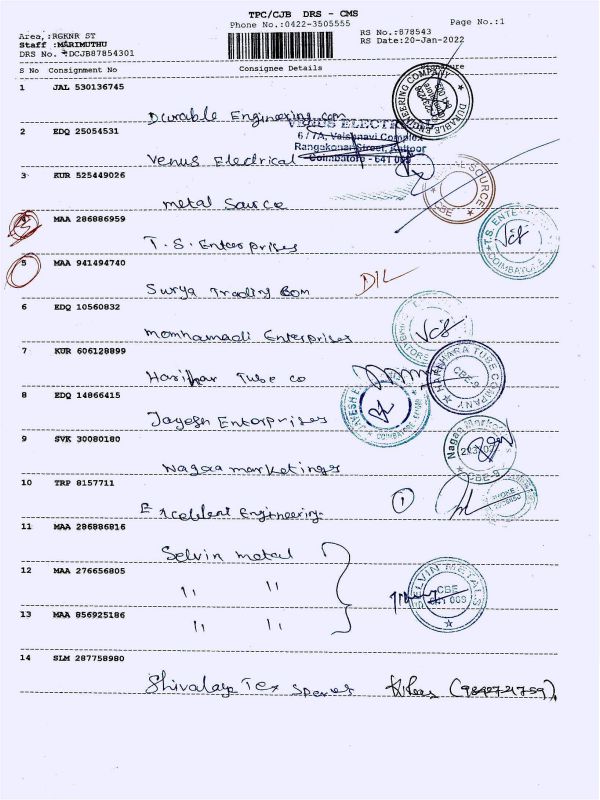 TPC/CJB DRS - CMS
Phone No.:0422-3505555
Page No.:1
Area,:RGKNR ST
RS No.:878543
Staff :MARIMUTHU
RS Date:20-Jan-2022
DRS No. DCJB87854301
S No Consignment No Consignee Details Signature
1 JAL 530136745
Durable Engineering com
DURABLE ENGINEERING COMPANY
2 EDQ 25054531
VENUS ELECTRICAL
6 / 7A, Vaishnavi Complex
Rangakonar Street, Kattoor
Coimbatore - 641 009
Venus Electrical
3 KUR 525449026
metal Source
SOURCE
CBE
4 MAA 286886959
T.S. Enterprises
T.S. ENTE
COIMBATORE
5 MAA 941494740
Surya Trading Com
DIL
6 EDQ 10560832
Momhamadi Enterprises
7 KUR 606128899
Harihar Tube co
HARIHARA TUBE COMPANY
CBE-9
8 EDQ 14866415
Jayesh Enterprises
JAYESH
COIMBATORE
9 SVK 30080180
Nagaa marketings
Nagaa Market
CBE-9
10 TRP 8157711
Excellent Engineering
1
11 MAA 286886816
Selvin metal
12 MAA 276656805
" "
SELVIN METALS
CBE
641 009
13 MAA 856925186
" "
14 SLM 287758980
Shivalaya Tex spares